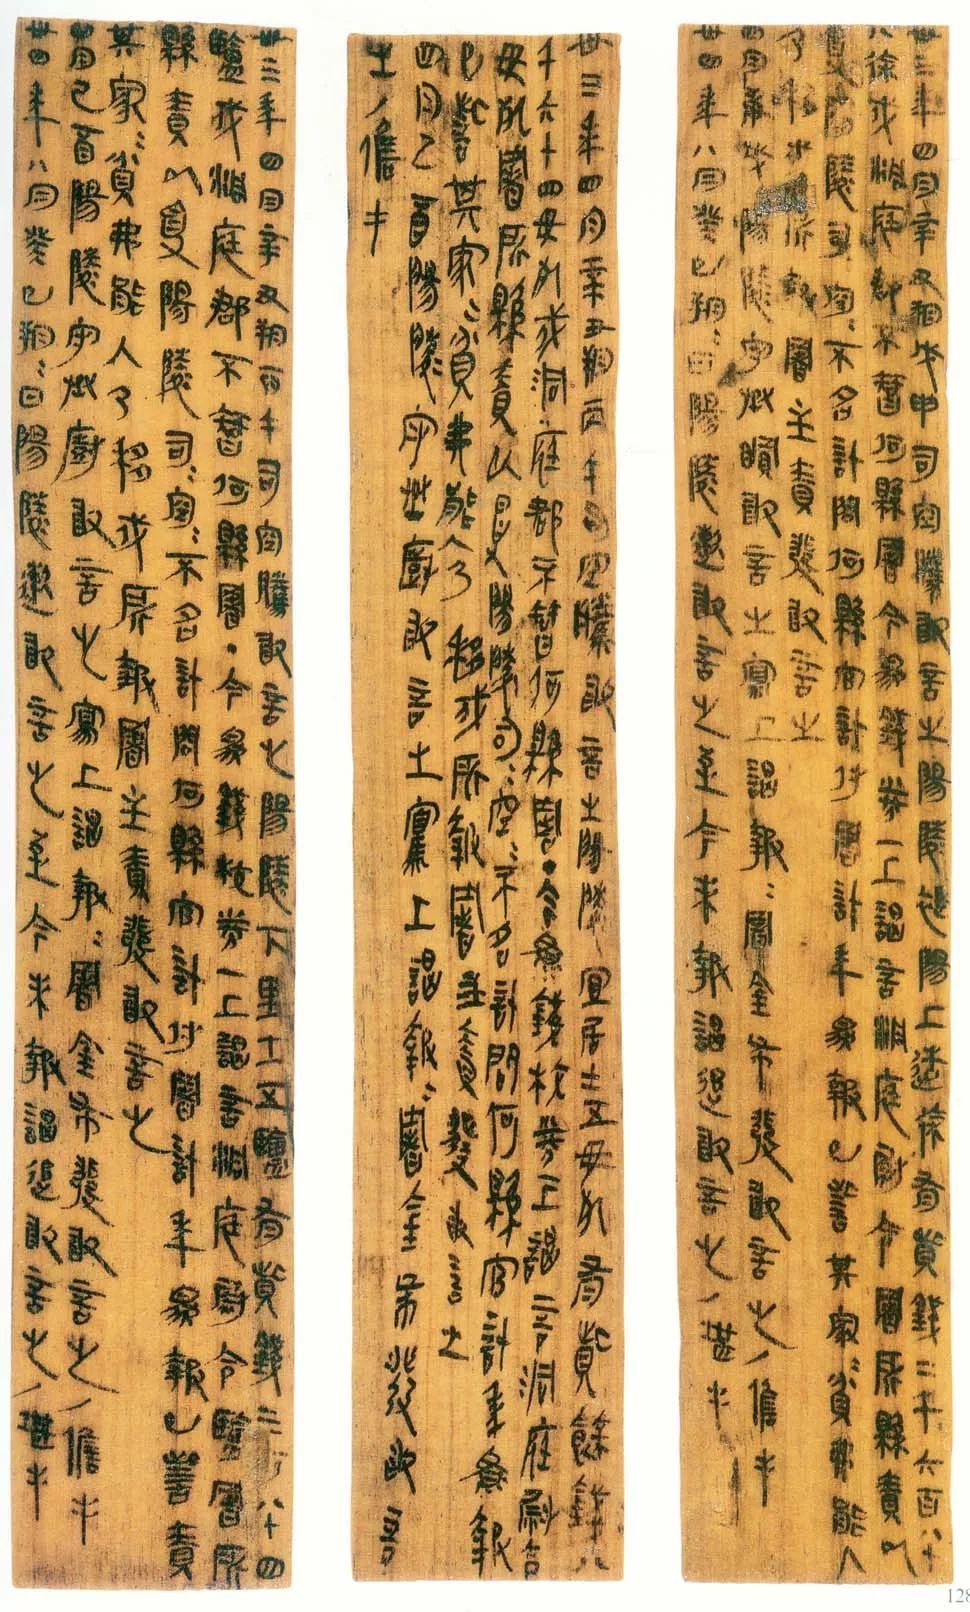 卅三年四月辛丑朔戊申司空騰敢言之陽陵褆陽上造徐有貲錢二千六百八十
八徐戍洞庭郡不智何縣署今為錢券一上謁言洞庭尉令署所縣責以
受陽陵司空=不名計問何縣官計付署計年為報已訾其家=貧弗能入
乃移戍所報署主責發敢言之
四月庚戌陽陵守丞瞫敢言之寫上謁報=署金布發敢言之/儋手
卅四年八月癸巳朔=日陽陵遫敢言之至今未報謁追敢言之/堪手
卅三年四月辛丑朔丙午司空騰敢言之陽陵宜居士五毋死有貲餘錢八
千六十四毋死戍洞庭郡不智何縣署·今為錢校券一上謁言洞庭尉令
毋死署所縣責以受陽陵司=空=不名計問何縣官計年為報
已訾其家=貧弗能入乃移戍所報署主責發敢言之
四月己酉陽陵守丞廚敢言之寫上謁報=署金布發敢言
之/儋手
卅三年四月辛丑朔丙午司空騰敢言之陽陵下里士五鹽有貲錢三百八十四
鹽戍洞庭郡不智何縣署·今為錢校券一上謁言洞庭尉令鹽署所
縣責以受陽陵司=空=不名計問何縣官計付署計年為報已訾責
其家=貧弗能入乃移戍所報署主責發敢言之
四月己酉陽陵守丞廚敢言之寫上謁報=署金布發敢言之/儋手
卅四年八月癸巳朔=日陽陵遫敢言之至今未報謁追敢言之/堪手
128